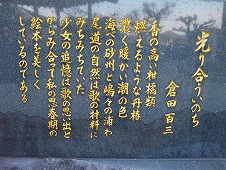 光り合ういのち
倉田百三
香の高い柑橘類
燃えるような丹椿
濃く暖かい潮の色
海べの砂州と嶋々の浦わ
尾道の自然は歌の材料に
みちみちていた
少女の追憶は歌の思い出と
からみ合って私の思春期の
絵本を美しく
しているのである